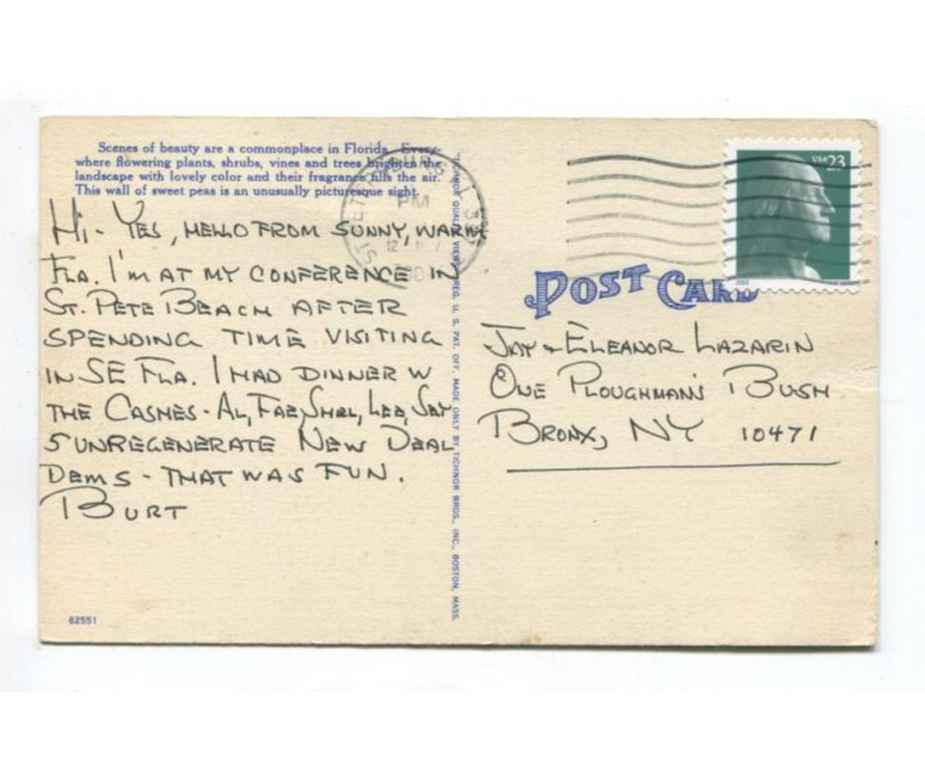 Scenes of beauty are a commonplace in Florida. Every-
where flowering plants, shrubs, vines and trees brighten the
landscape with lovely color and their fragrance fills the air.
This wall of sweet peas is an unusually picturesque sight.
HI - YES, HELLO FROM SUNNY, WARM
FLA. I'M AT MY CONFERENCE IN
ST. PETE BEACH AFTER
SPENDING TIME VISITING
IN SE FLA. I HAD DINNER W
THE CASHES - AL, FAE, SHEL, LEE, JAY
5 UNREGENERATE NEW DEAL
DEMS - THAT WAS FUN.
BURT
62551
QUALITY VIEWS REG. U. S. PAT. OFF. MADE ONLY BY TICHNOR BROS., INC., BOSTON, MASS.
PM
12
23
POST CARD
JAY + ELEANOR LAZARIN
ONE PLOUGHMAN'S BUSH
BRONX, NY 10471